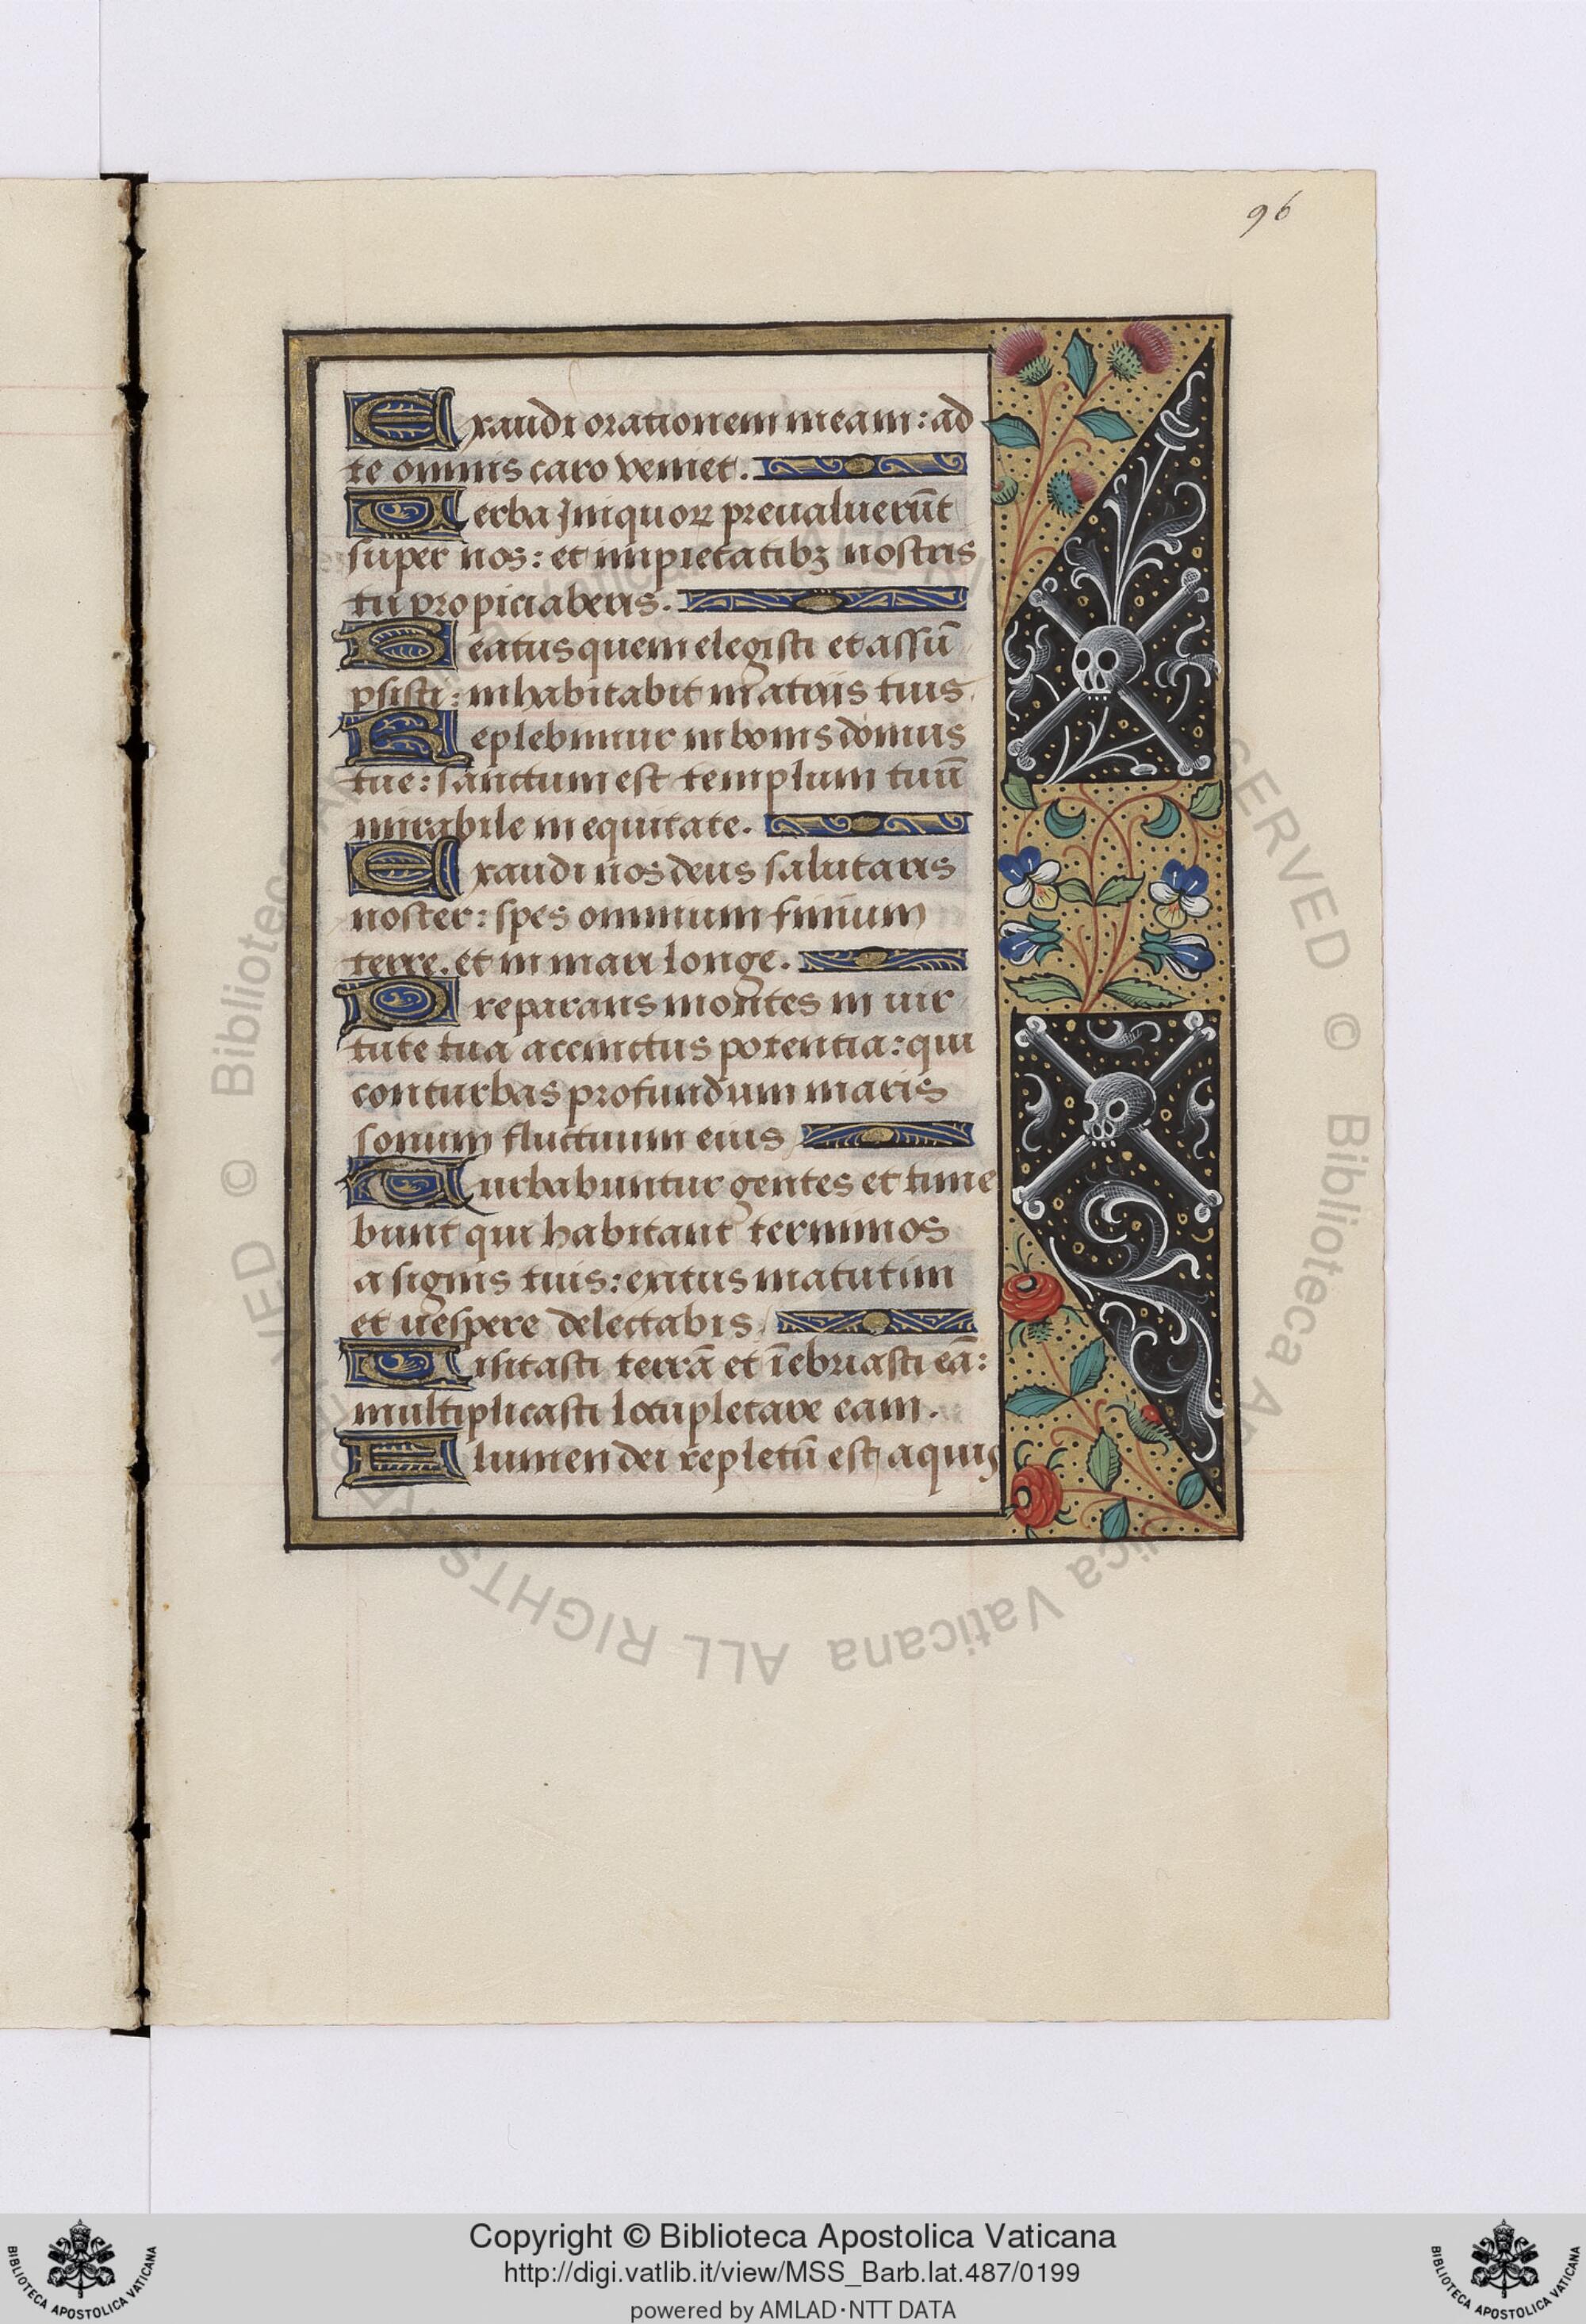 96
Exaudi orationem meam: ad
te omnis caro veniet.
Verba Iniquoꝝ preualuerūt
super nos: et impietatibꝫ nostris
tu propiciaberis.
Beatus quem elegisti et assū
psisti: inhabitabit in atriis tuis.
Replebimur in bonis domus
tue: sanctum est templum tuū
mirabile in equitate.
Exaudi nos deus salutaris
noster: spes omnium finium
terre. et in mari longe.
Preparans montes in uir
tute tua accinctus potentia: qui
conturbas profundum maris
sonum fluctuum eius
Turbabuntur gentes et time
bunt qui habitant terminos
a signis tuis: exitus matutini
et uespere delectabis.
Visitasti terrā et īebriasti eā:
multiplicasti locupletare eam.
Flumen dei repletū est aquis
© Biblioteca Apostolica Vaticana ALL RIGHTS RESERVED
Copyright © Biblioteca Apostolica Vaticana
http://digi.vatlib.it/view/MSS_Barb.lat.487/0199
powered by AMLAD·NTT DATA
BIBLIOTECA APOSTOLICA VATICANA
BIBLIOTECA APOSTOLICA VATICANA